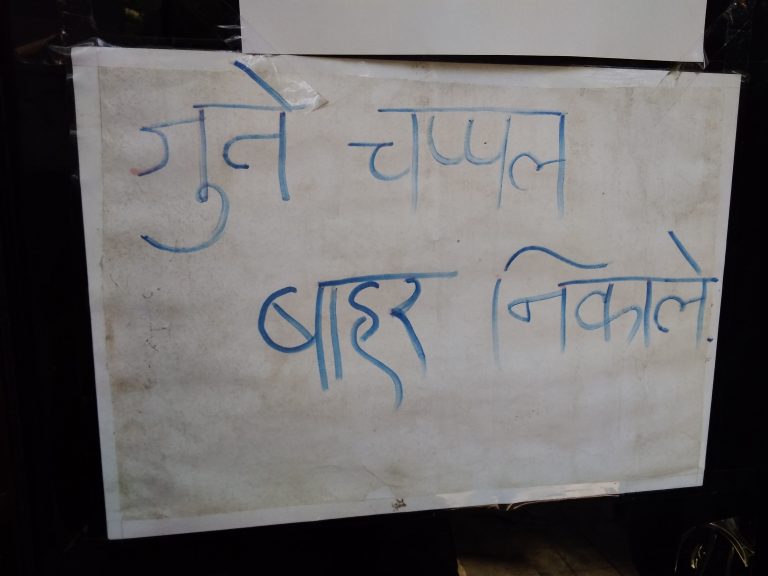 जुते चप्पल
बाहर निकाले.